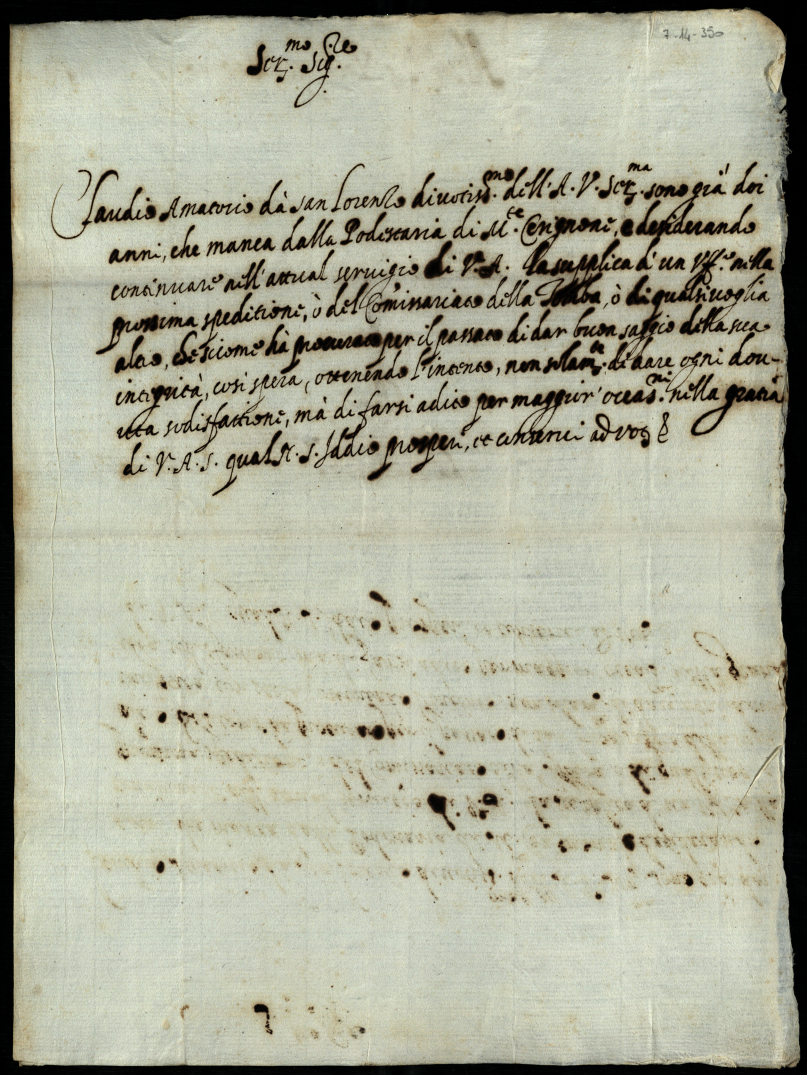 7-14-350
Ser.mo Sig.re
Claudio Amatorio dà san Lorenzo divotiss.mo dell'A.V. Ser.ma sono già doi
anni, che manca dalla Podestaria di M.te Cerignone, e desiderando
continuare nell'attual servigio di V.A. la supplica d'un Uff.o nella
prossima speditione, ò del Com̃issariato della Tomba, ò di qualsivoglia
altro, che sicome hà procurato per il passato di dar buon saggio della sua
integrità, così spera, ottenendo l'intento, non solam.te di dare ogni dou-
uta sodisfattione, mà di farsi adito per maggior' occas.ni nella gratia
di V.A.S. qual N.S. Iddio prosperi, et conservi ad vot